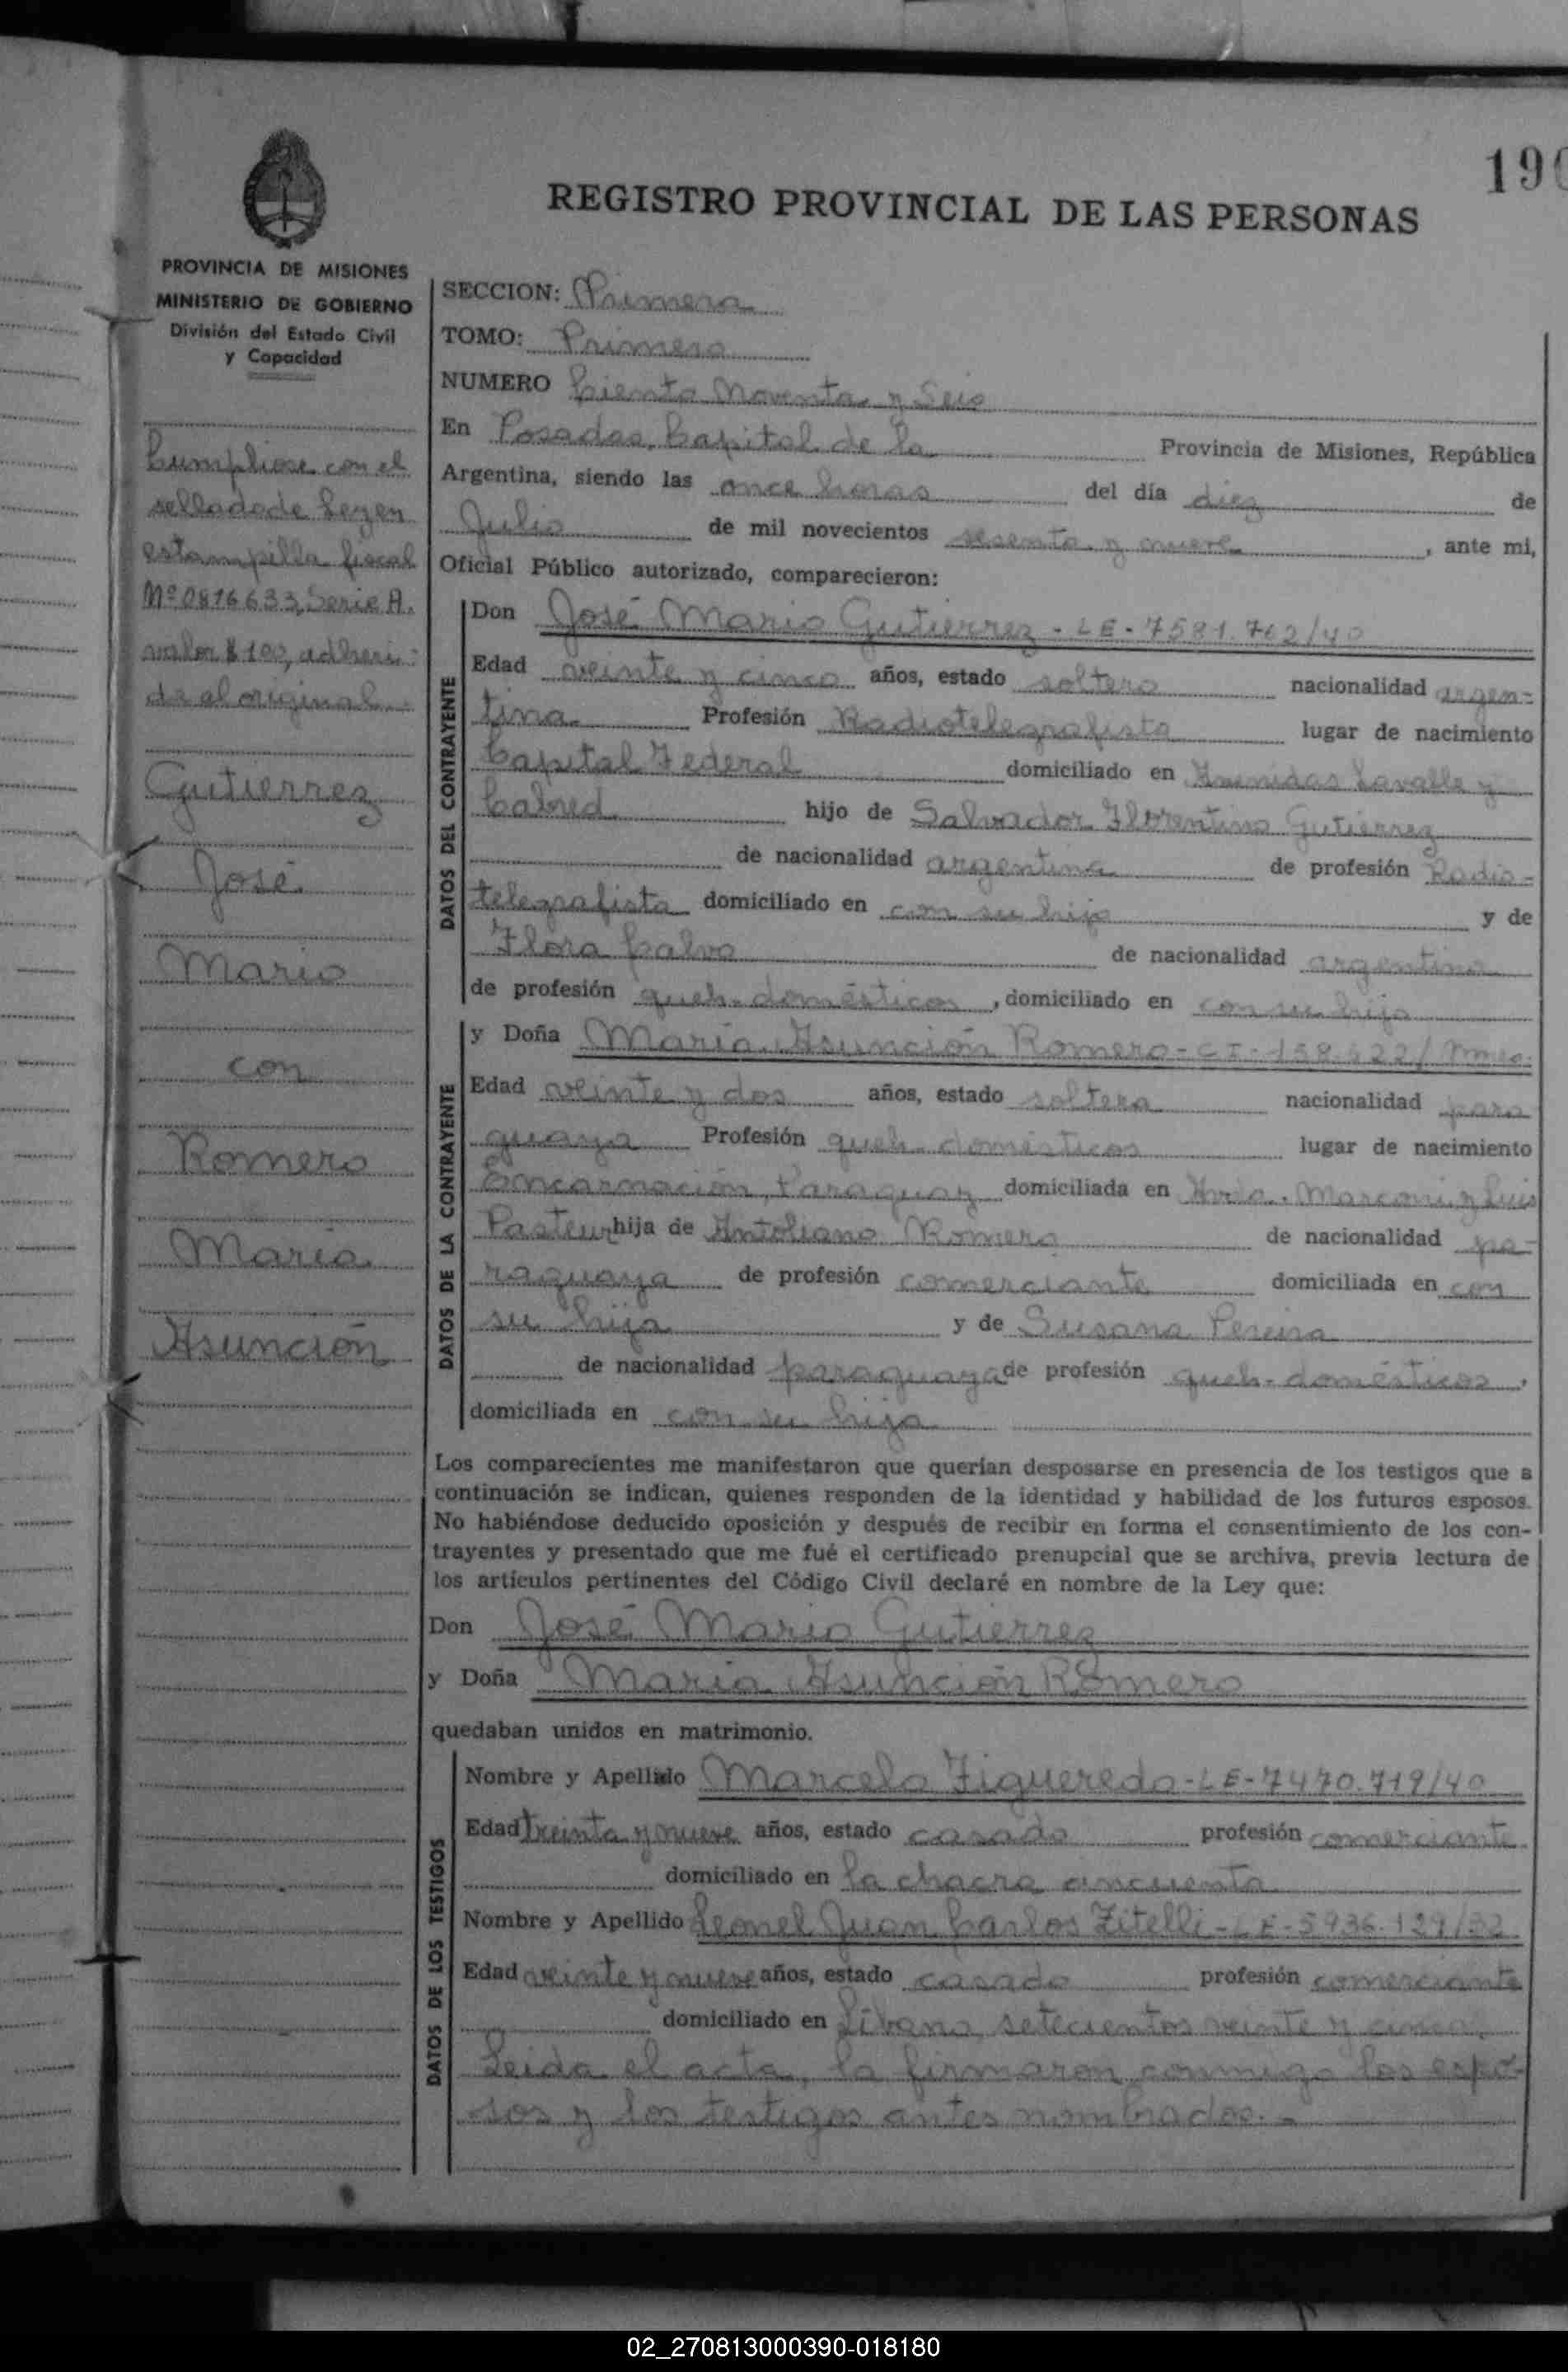 190
REGISTRO PROVINCIAL DE LAS PERSONAS
PROVINCIA DE MISIONES
MINISTERIO DE GOBIERNO
División del Estado Civil
y Capacidad
Cumpliose con el
sellado de Ley en
estampilla fiscal
Nº 0816633, Serie A.
valor $ 100, adheri-
da al original.
Gutierrez
José
Mario
con
Romero
María
Asunción
SECCION: Primera
TOMO: Primero
NUMERO Ciento Noventa y Seis
En Posadas, Capital de la Provincia de Misiones, República
Argentina, siendo las once horas del día diez de
Julio de mil novecientos sesenta y nueve, ante mi,
Oficial Público autorizado, comparecieron:
DATOS DEL CONTRAYENTE
Don José Mario Gutierrez - LE - 7581.762/40
Edad veinte y cinco años, estado soltero nacionalidad argen-
tina Profesión Radiotelegrafista lugar de nacimiento
Capital Federal domiciliado en Avenidas Lavalle y
Cabred hijo de Salvador Florentino Gutierrez
de nacionalidad argentina de profesión Radio-
telegrafista domiciliado en con su hijo y de
Flora Calvo de nacionalidad argentina
de profesión queh. domésticos, domiciliado en con su hijo
DATOS DE LA CONTRAYENTE
y Doña María Asunción Romero - CI - 158.422/
Edad veinte y dos años, estado soltera nacionalidad para
guaya Profesión queh. domésticos lugar de nacimiento
Encarnación, Paraguay domiciliada en Avda. Marconi y Luis
Pasteur hija de Antoliano Romero de nacionalidad pa-
raguaya de profesión comerciante domiciliada en con
su hija y de Susana Pereira
de nacionalidad paraguaya de profesión queh. domésticos,
domiciliada en con su hija
Los comparecientes me manifestaron que querían desposarse en presencia de los testigos que a
continuación se indican, quienes responden de la identidad y habilidad de los futuros esposos.
No habiéndose deducido oposición y después de recibir en forma el consentimiento de los con-
trayentes y presentado que me fué el certificado prenupcial que se archiva, previa lectura de
los artículos pertinentes del Código Civil declaré en nombre de la Ley que:
Don José Mario Gutierrez
y Doña María Asunción Romero
quedaban unidos en matrimonio.
DATOS DE LOS TESTIGOS
Nombre y Apellido Marcelo Figueredo - LE - 7470.719/40
Edad treinta y nueve años, estado casado profesión comerciante
domiciliado en la chacra cincuenta
Nombre y Apellido Leonel Juan Carlos Zitelli - LE - 5936.129/32
Edad veinte y nueve años, estado casado profesión comerciante
domiciliado en Líbano, setecientos veinte y cinco.
Leida el acta, la firmaron conmigo los espo-
sos y los testigos antes nombrados.-
02_270813000390-018180